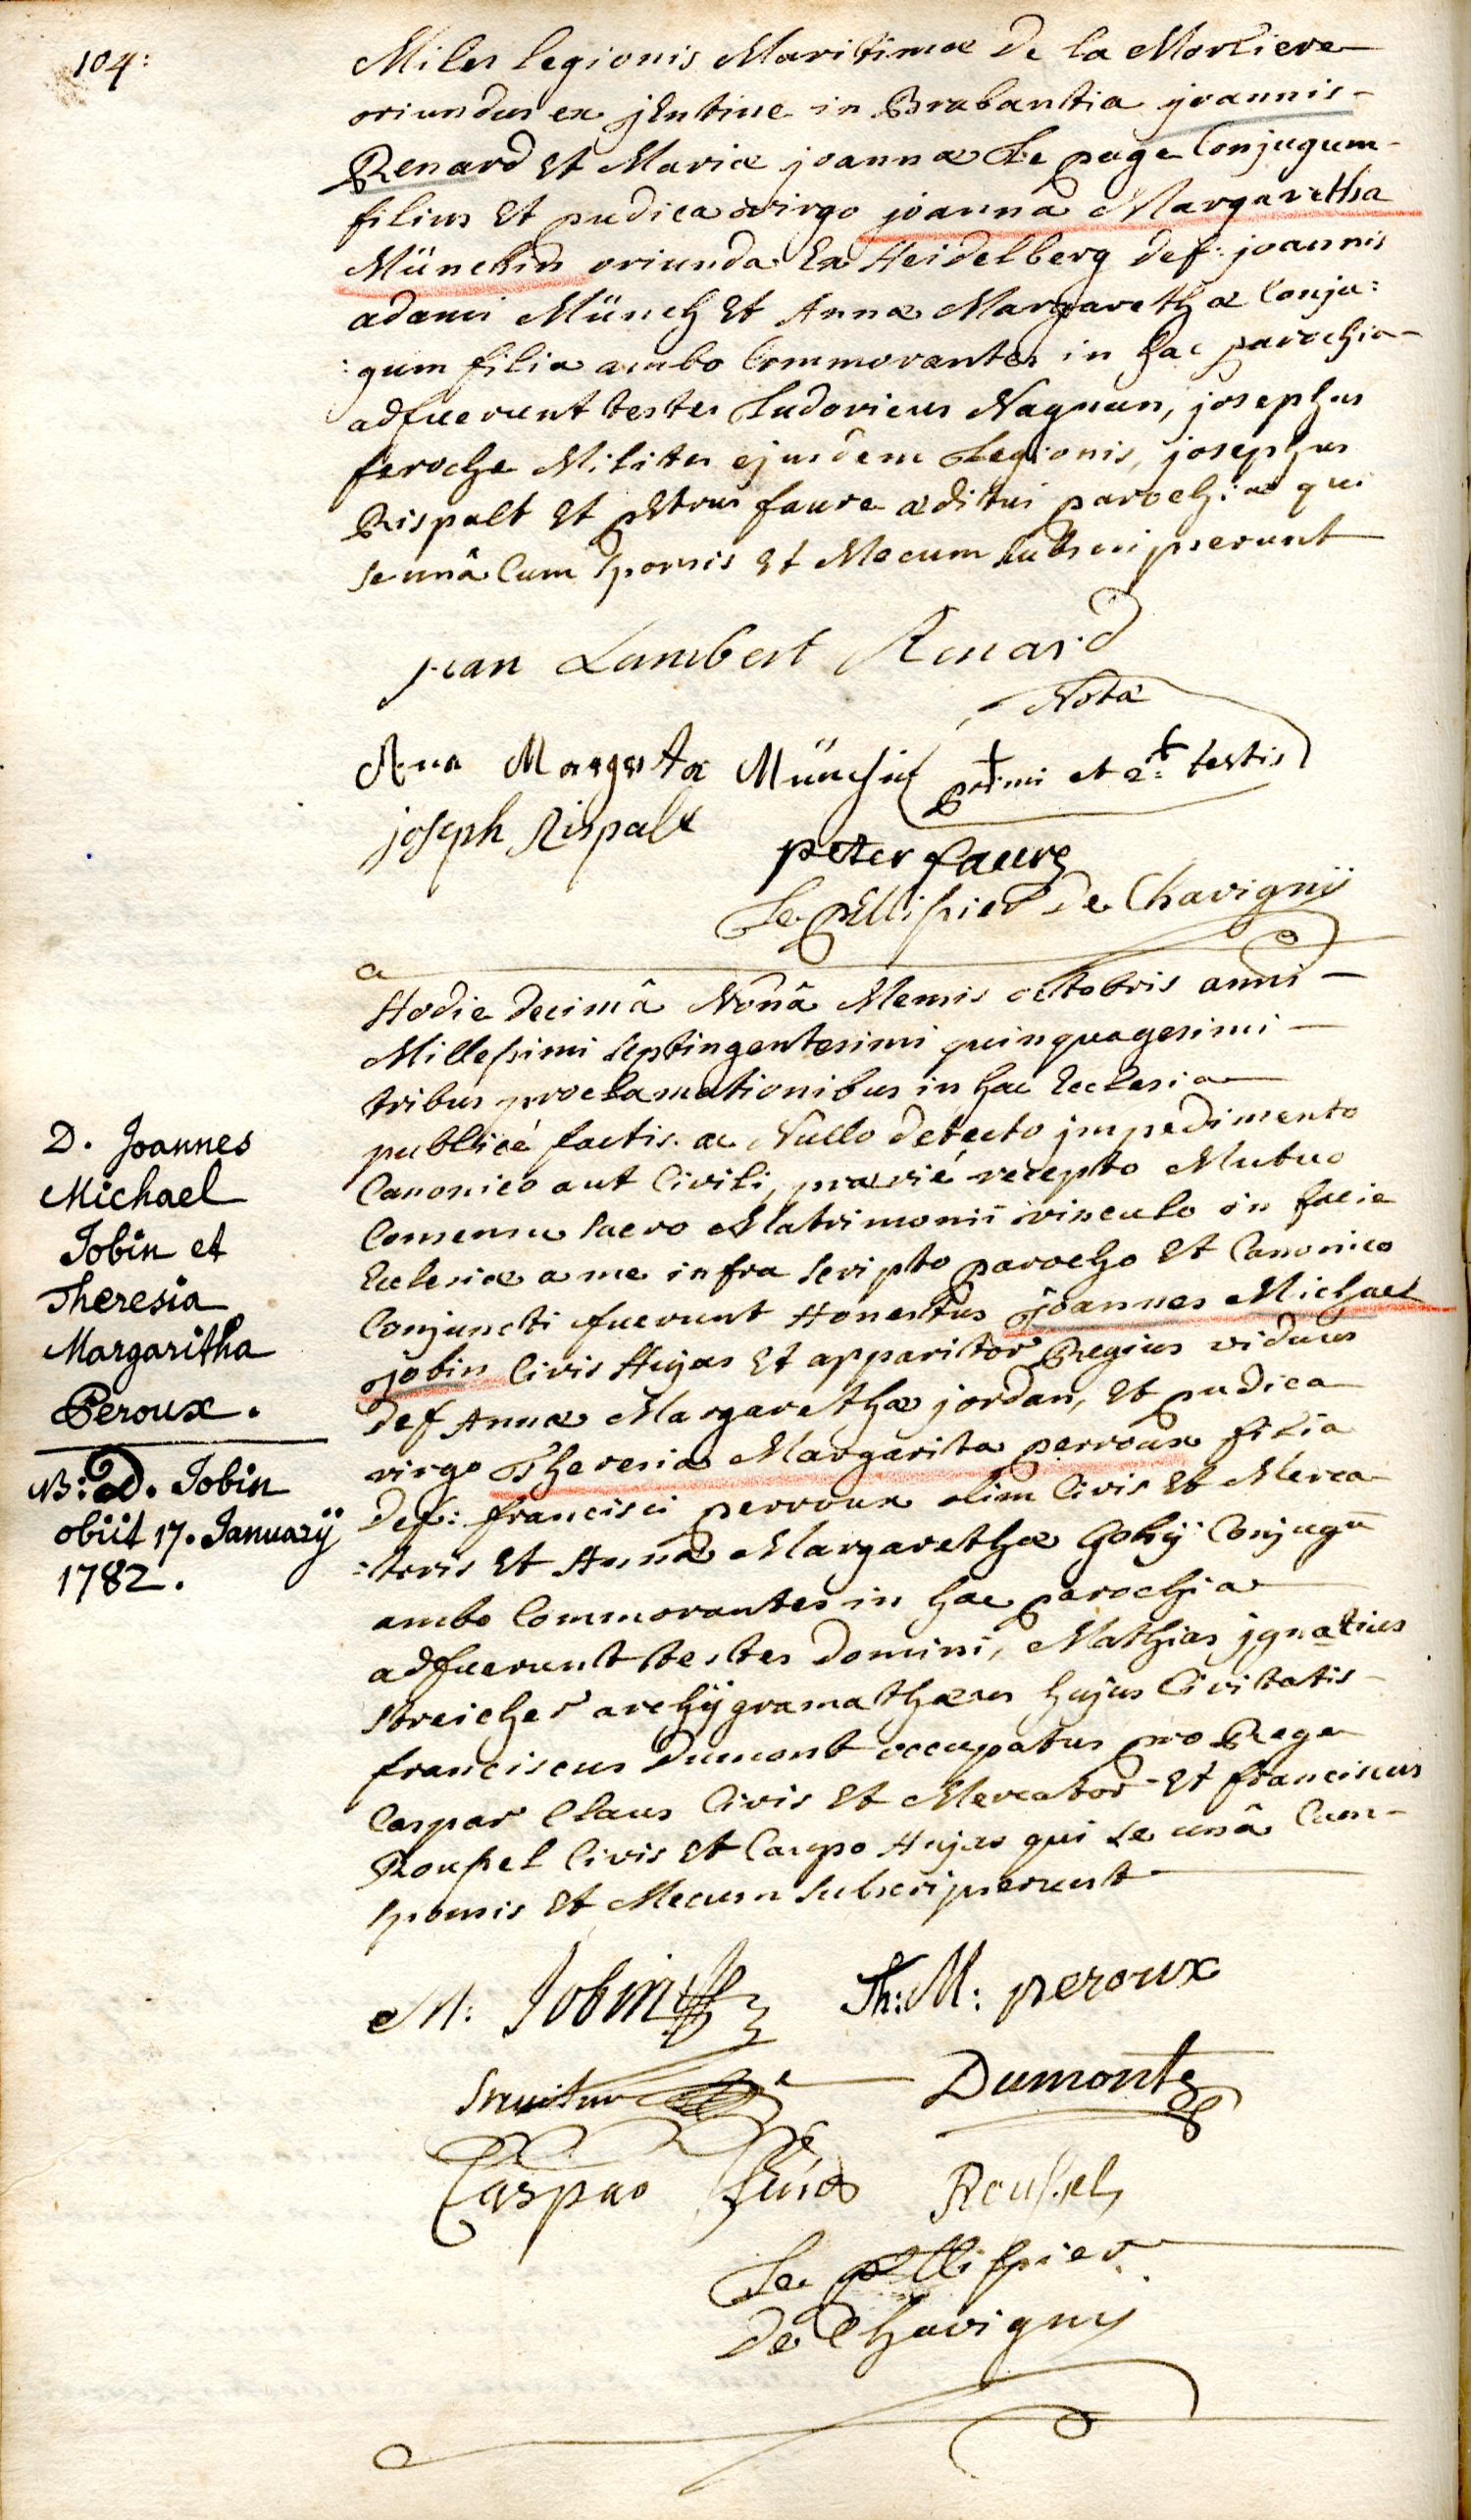 104:
Miles legionis Maritimæ De la Morliere
oriundus ex jentine in Brabantia joannis
Renard Et Mariæ joannæ Le page Conjugum
filius Et pudica virgo joanna Margaretha
Münchin oriunda Ex Heidelberg def: joannis
adami Münch Et Annæ Margarethæ Conju:
:gum filia ambo Commorantes in hac parochia
adfuerunt testes Ludovicus Nagnan, josephus
feroche Milites ejusdem Legionis, josephus
Rispalt Et petrus faure æditui parochiæ qui
se unâ Cum sponsis Et Mecum subscripserunt
jean Lambert Renard
Nota
Ana Margreta Münchin + primi et 2i + testis
joseph Rispalt
peter faure
Le pellissier De Chavignÿ
Hodie decimâ Nonâ Mensis octobris anni
Millesimi septingentesimi quinquagesimi
tribus proclamationibus in hac Ecclesia
publicé factis ac Nullo detecto jmpedimento
Canonico aut Civili, prævié recepto Mutuo
Consensu sacro Matrimonii vinculo in facie
Ecclesiæ a me infra scripto parocho Et Canonico
Conjuncti fuerunt Honestus joannes Michael
jobin Civis Hujas Et apparitor Regius viduus
Def Annæ Margarethæ jordan, Et pudica
virgo Theresia Margarita perroux filia
Def: francisci perroux olim Civis Et Merca
:toris Et Annæ Margarethæ Gohÿ Conjugū
ambo Commorantes in hac parochia
adfuerunt testes Domini, Mathias jgnatius
streicher archÿgramathæus hujus Civitatis
franciscus Dumont occupatus pro Rege
Caspar Claus Civis Et Mercator Et franciscus
Roussel Civis Et Caupo Hujas qui se unâ Cum
sponsis Et Mecum subscripserunt
D. Joannes
Michael
Jobin et
Theresia
Margaritha
Peroux.
NB: D. Jobin
obiit 17. Januarÿ
1782.
M: Jobin Th: M: peroux
Dumont
Caspar Roussel
Le pellissier
de Chavigny